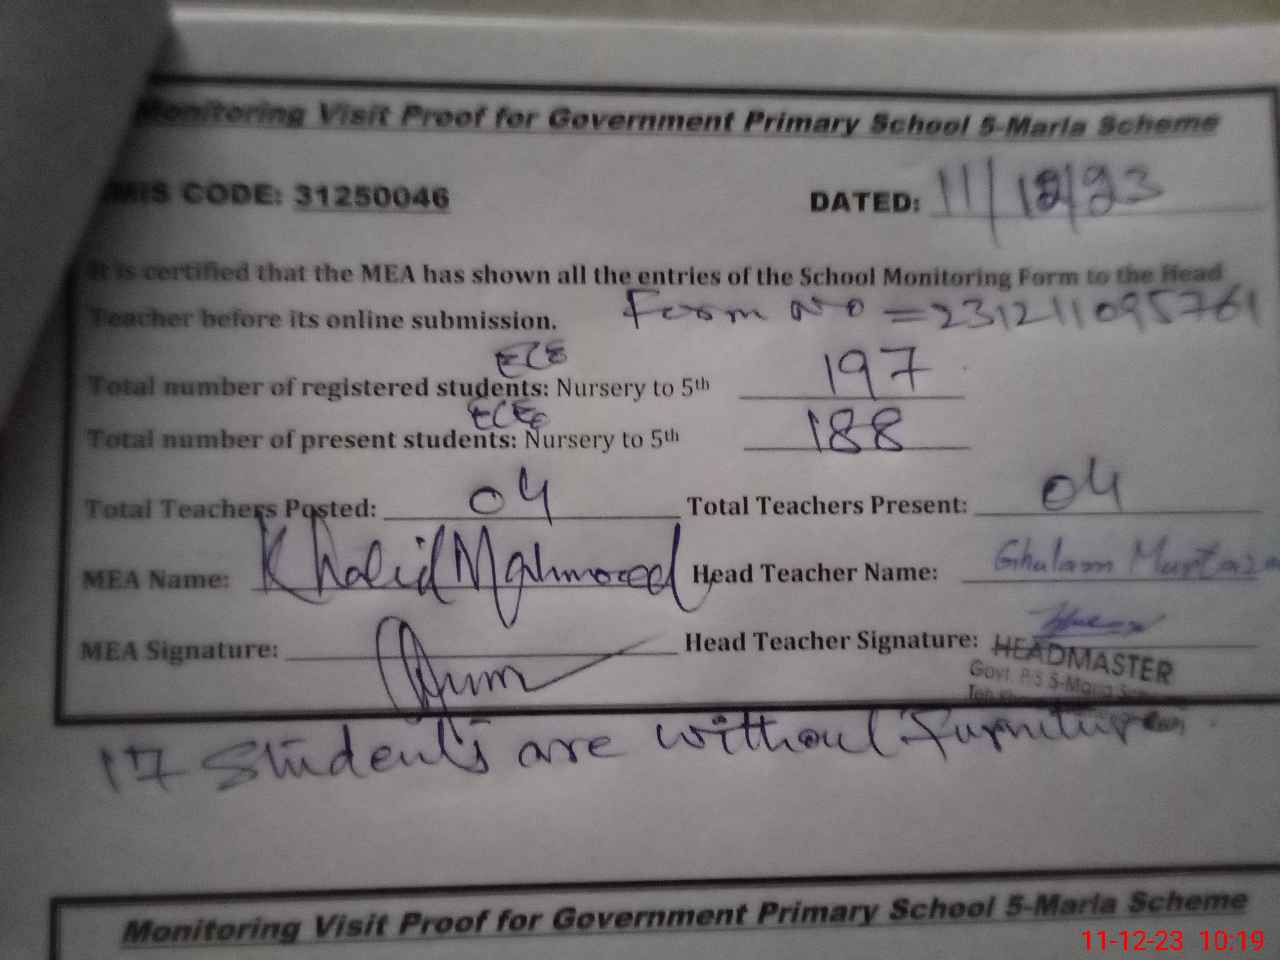 Monitoring Visit Proof for Government Primary School 5-Marla Scheme
CODE: 31250046 DATED: 11/12/23
It is certified that the MEA has shown all the entries of the School Monitoring Form to the Head
Teacher before its online submission. Form No = 231211095761
ECE
Total number of registered students: Nursery to 5th 197
ECE
Total number of present students: Nursery to 5th 188
Total Teachers Posted: 04 Total Teachers Present: 04
MEA Name: Khalid Mahmood Head Teacher Name: Ghulam Murtaza
MEA Signature: Head Teacher Signature:
HEADMASTER
Govt. P/S 5-Marla
17 Students are without furniture
Monitoring Visit Proof for Government Primary School 5-Marla Scheme
11-12-23 10:19